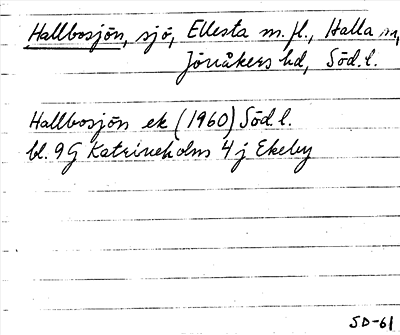 Hallbosjön, sjö, Ellesta m.fl., Halla sn,
Jönåkers hd, Söd.l.
Hallbosjön ek (1960) Söd.l.
bl. 9G Katrineholm 4 j Ekeby
SD-61